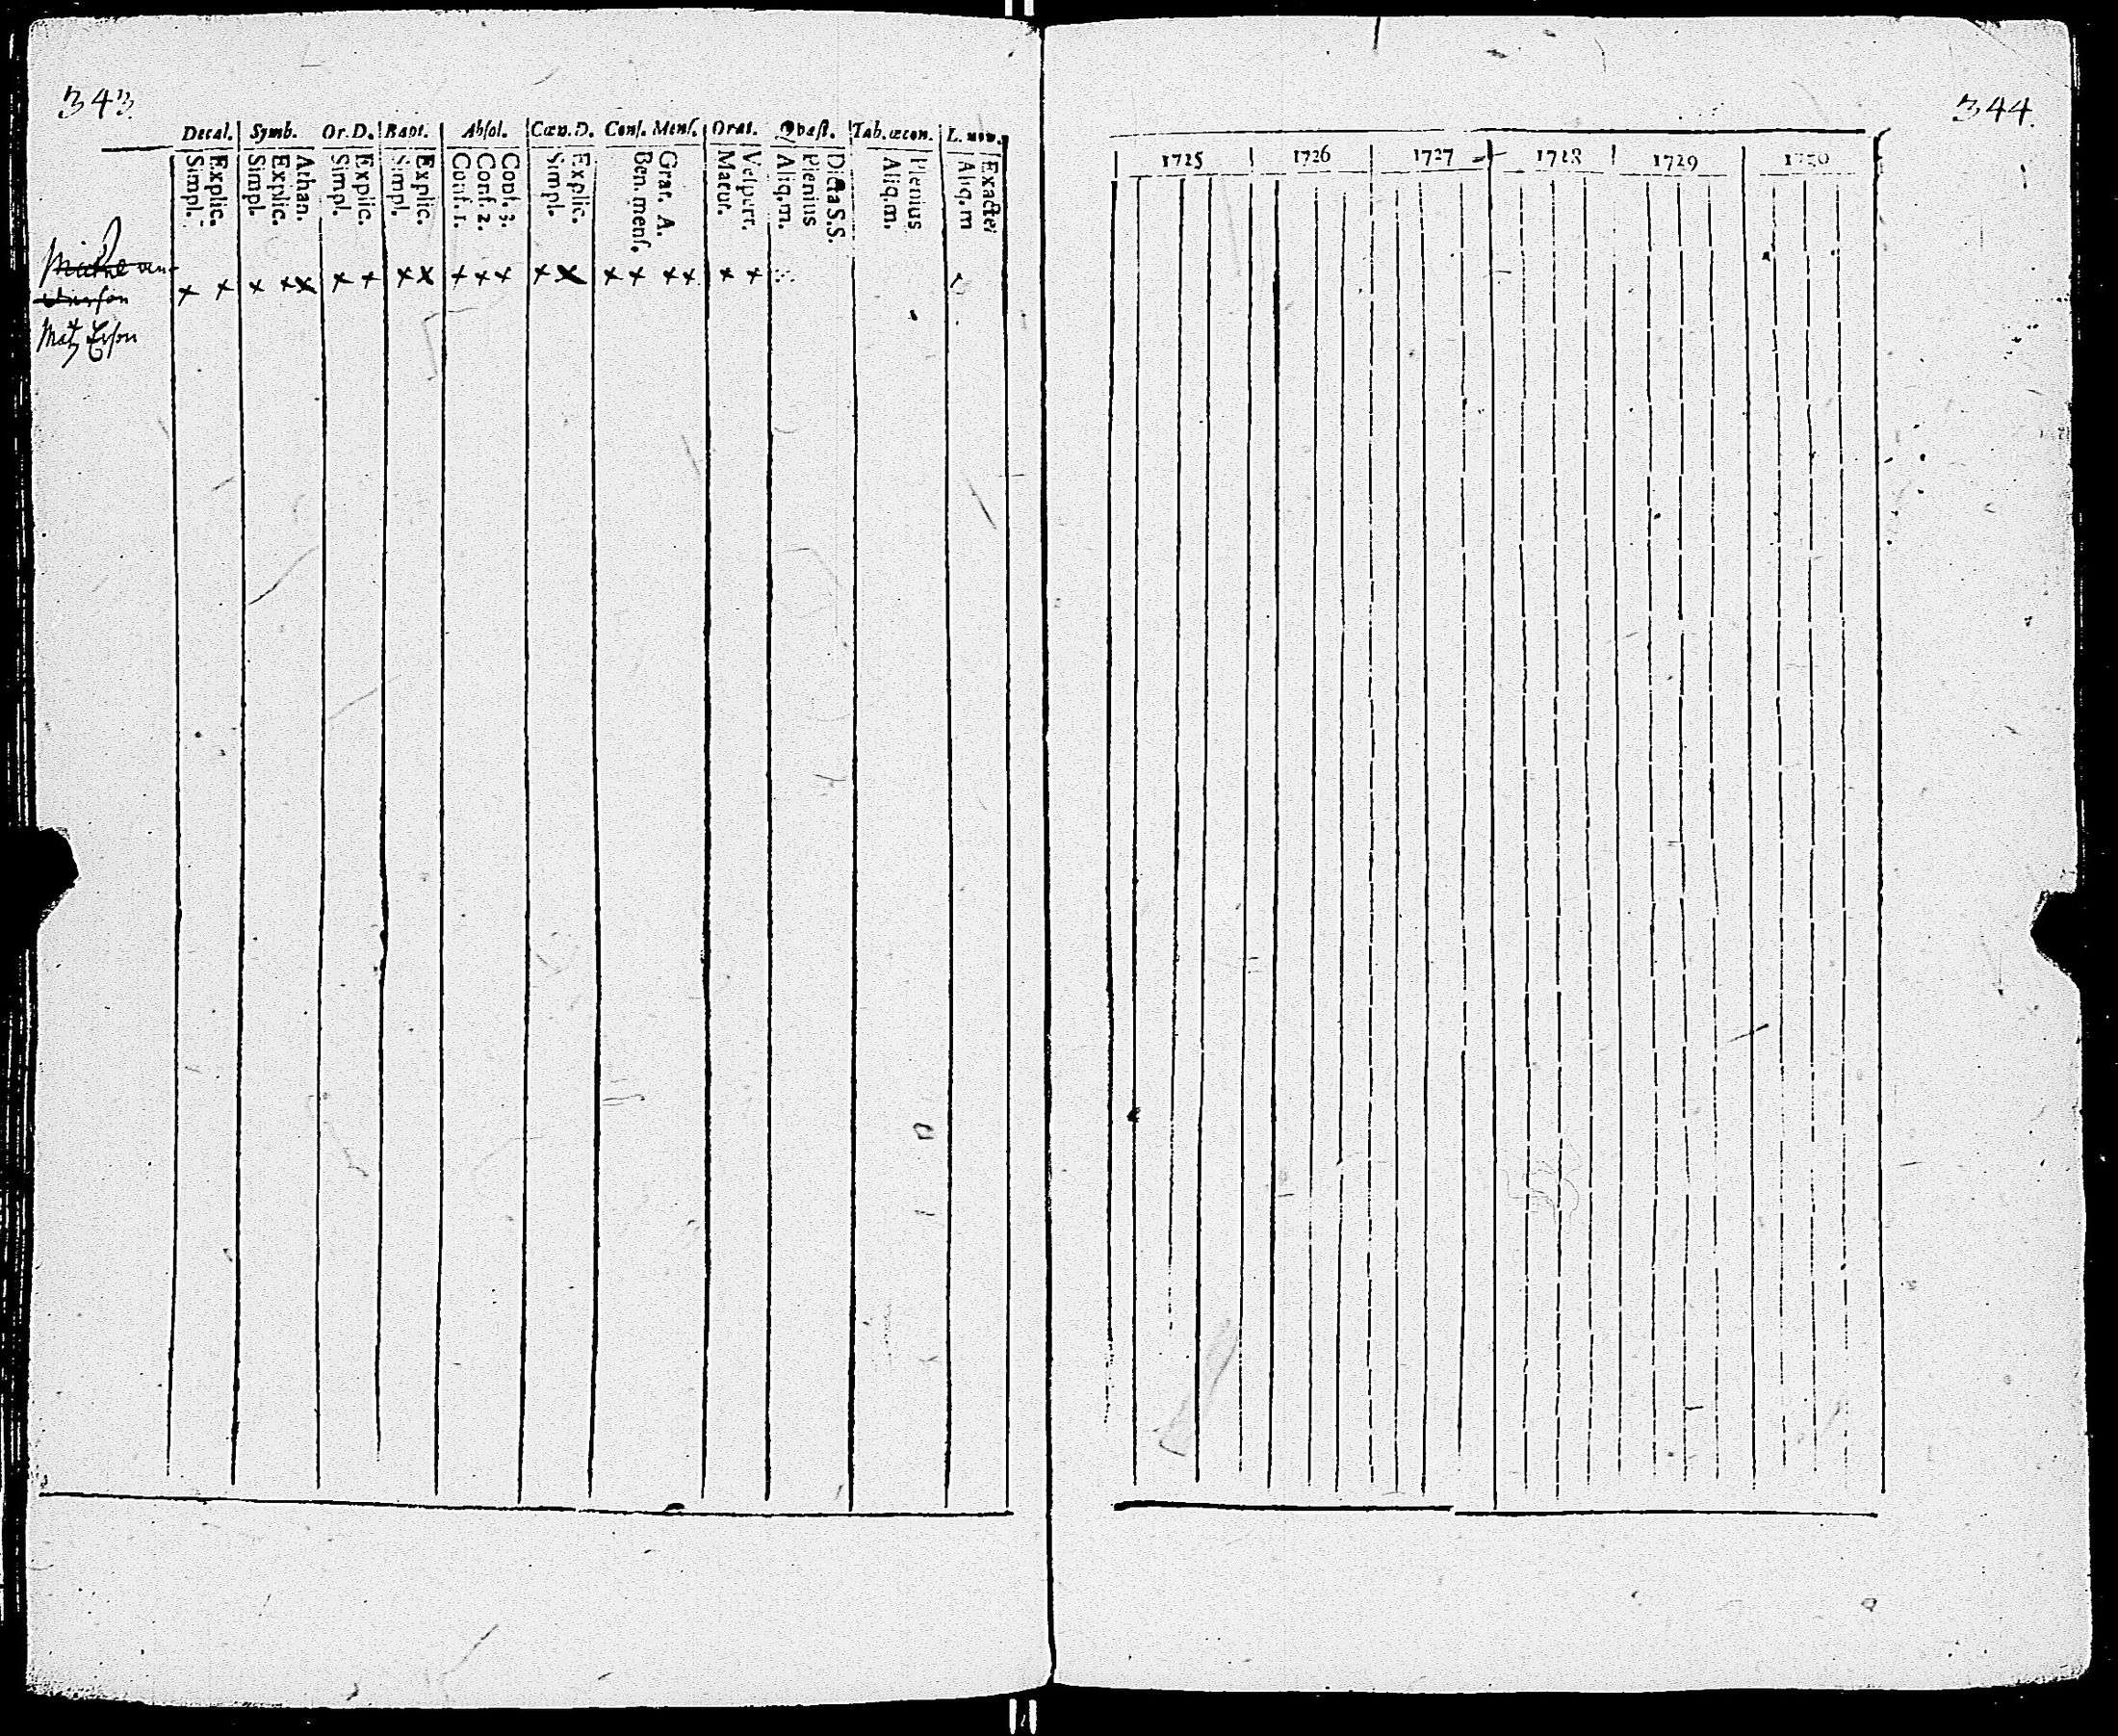 343.
Decal. Symb. Or. D. Bapt. Absol. Cœn. D. Conf. Mens. Orat. Qvæst. Tab. œcon. L. nov.
Simpl. Explic. Simpl. Explic. Athan. Simpl. Explic. Simpl. Explic. Conf. 1. Conf. 2. Conf. 3. Simpl. Explic. Ben. mens. Grat. A. Matut. Vespert. Aliq. m. Plenius Dicta S.S. Aliq. m. Plenius Aliq. m Exacte
x x x x x x x x x x x x x x x x x x x x
Matz Ersson
344.
1725 1726 1727 1728 1729 1730